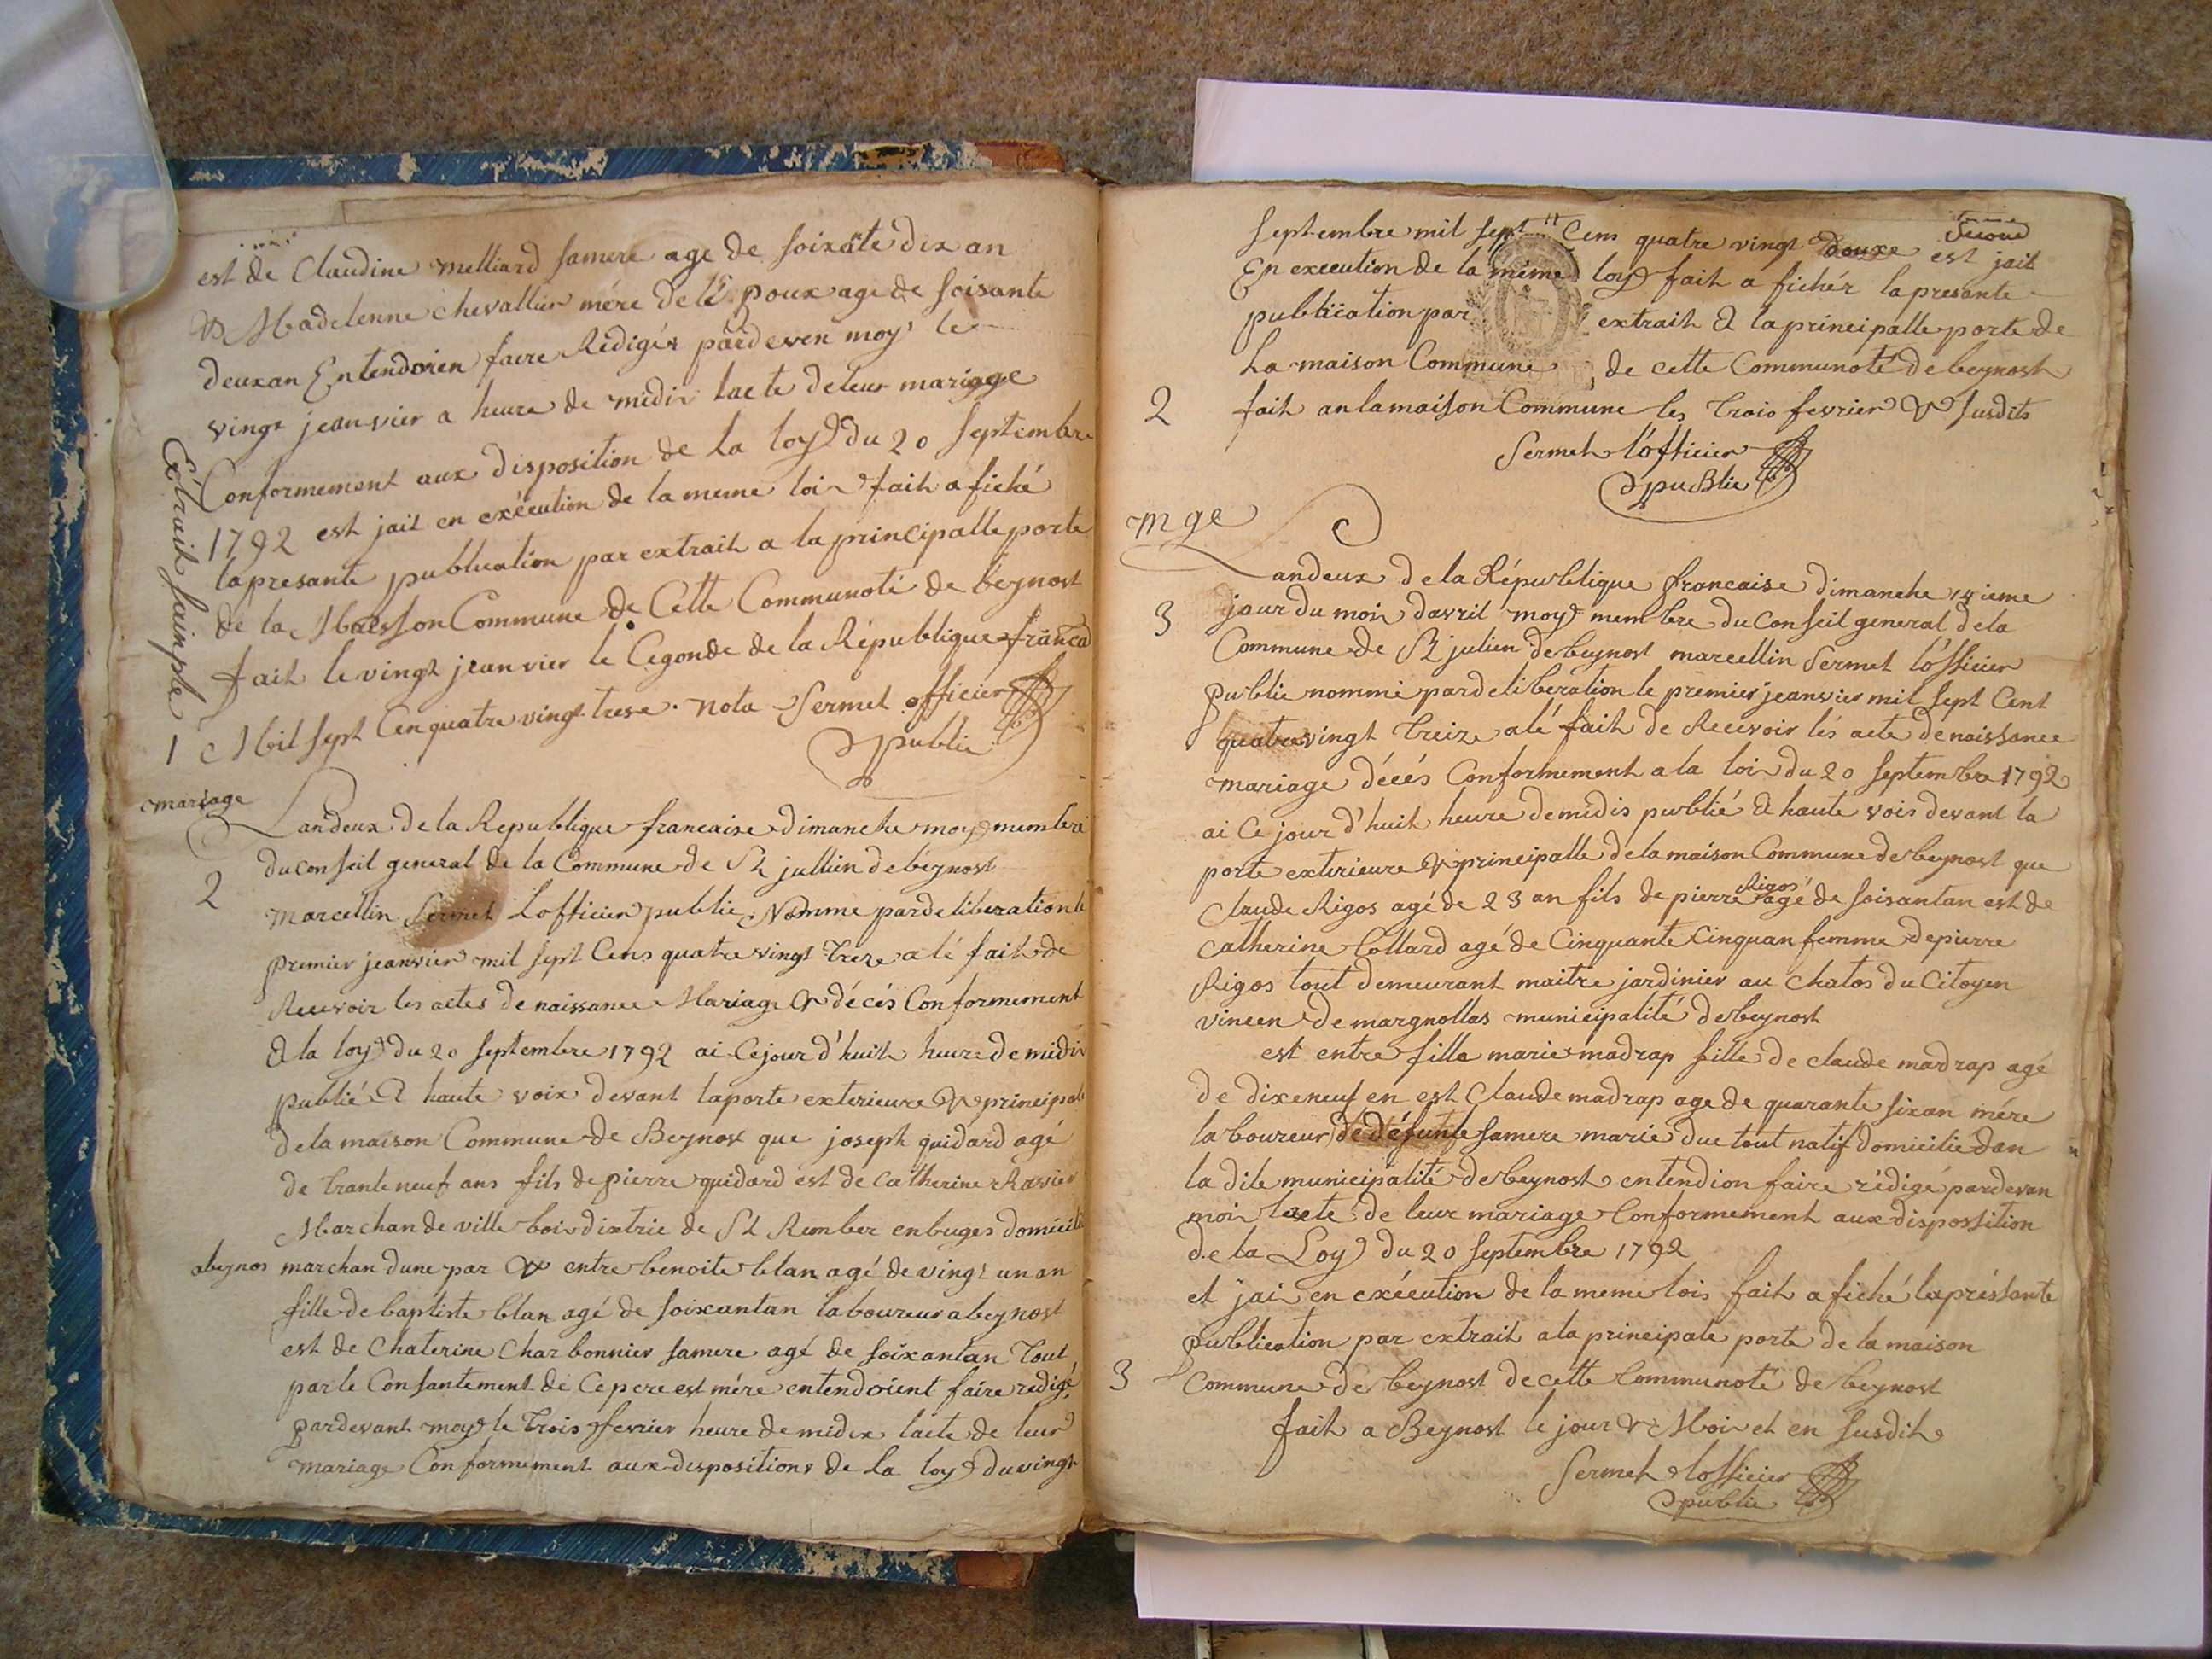 est de Claudine melliard samere age de soixãte dix an
& Madelenne chevallier mére delé poux age de soisante
deux an Entendoien faire Rédigér pardeven moy le
vingt jeanvier a heure de midi lacte deleur mariage
Conformement aux disposition de la loy du 20 septembre
1792 est jait en exécution de la meme loi fait a fiché
lapresante publication par extrait a la principalle porte
de la Maisson Commune de Cette Communoté de beynost
fait le vingt jeanvier le Cegonde de la République franca
Extrait sainple
1 Mil sept Cenquatre vingt trese . nota Sermet officier
publie
mariage
Landeux de la Republique francaise dimanche moy membre
du conseil general de la Commune de St jullien de beynost
2
marcellin Sermet Lofficier publie Nomme par deliberation le
premier jeanvier mil sept Cens quatre vingt treze a lé fait de
Recevoir les actes de naissance Mariage & décés Conformement
a la loy du 20 septembre 1792 ai Cejour d'huit heure de midi
publié a haute voix devant laporte exterieure & principale
de la maison Commune de Beynost que joseph guidard agé
de trante neuf ans fils de pierre guidard est de Catherine Ravier
Marchan de ville bois dixtrie de St Rember en buges domicilie
abeynos marchan dune par & entre benoite blan agé de vingt un an
fille de baptiste blan agé de soixantan laboureur a beynost
est de Chaterine Charbonnier samere agé de soixantan tout
par le Consantement de Ce pere est mére entendoient faire redigé
pardevant moy le trois fevrier heure de midix lacte de leur
mariage Conformement aux dispositions de la loy du vingt
septembre mil sept Cens quatre vingt douxe second est jait
En execution de la méme loy fait a fichér la presante
publication par extrait a la principalle porte de
La maison Commune de cette Communoté de beynost
2 fait an lamaison Commune les trois fevrier & susdits
Sermet l'officier
publie
mge
Landeux de la République francaise dimanche 14 ieme
3 jour du mois davril moy membre du Conseil general dela
Commune de St julien de beynost marcellin Sermet l'officier
publie nommé par deliberation le premier jeanvier mil sept Cent
quatrevingt treize a lé fait de Recevoir lés acte de naissance
mariage décés Conformement a la loi du 20 septembre 1792
ai Ce jour d'huit heure de midis publié a haute vois devant la
porte exterieure & principalle de la maison Commune de beynost que
Claude Rigos agé de 23 an fils de pierre Rigos agé de soisantan est de
Catherine Collard agé de Cinquante Cinquan femme de pierre
Rigos tout demeurant maitre jardinier au chatos du Citoyen
vincen de margnollas municipalité de beynost
est entre fille marie madrap fille de claude madrap agé
de dixeneuf en est Claude madrap age de quarante sixan mére
laboureur de défunte samere marie duc tout natif domicilie dan
la dite municipalite de beynost entendion faire rédigé pardevan
moi lacte de leur mariage Conformement aux dispossition
de la Loy du 20 septembre 1792
et jai en exécution de la meme lois fait a fiché la préssante
publication par extrait a la principale porte de la maison
3 Commune de beynost de cette Communoté de beynost
fait a Beynost le jour & Moi et en susdit
Sermet l'officier
publie